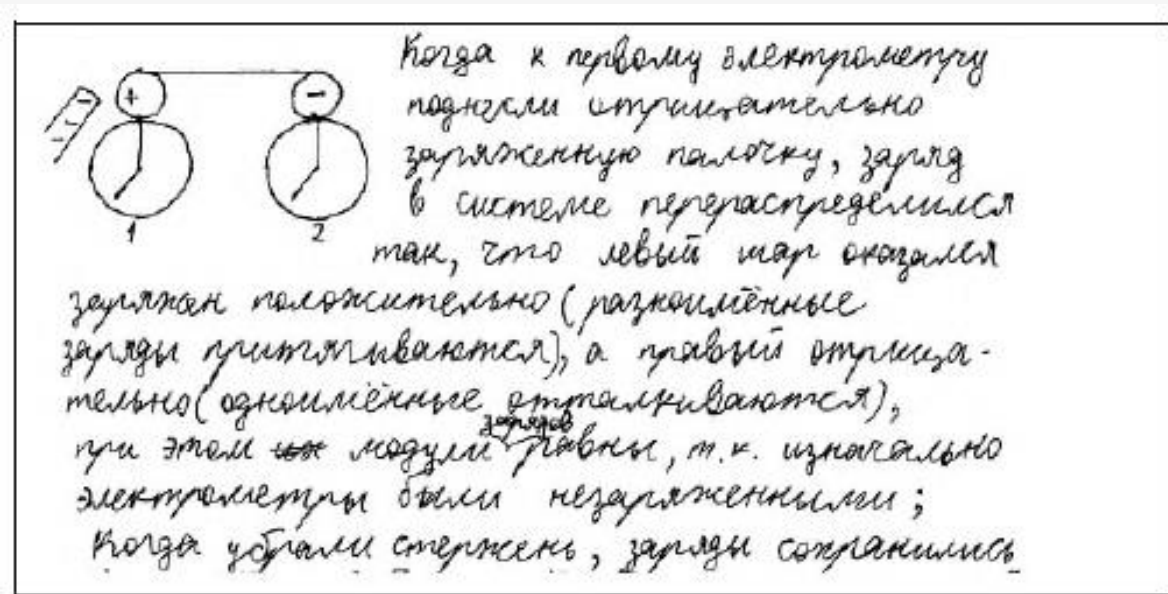 Когда к первому электрометру
поднесли отрицательно
заряженную палочку, заряд
в системе перераспределился
так, что левый шар оказался
заряжен положительно (разноимённые
заряды притягиваются), а правый отрица-
тельно (одноимённые отталкиваются),
при этом модули зарядов равны, т.к. изначально
электрометры были незаряженными;
Когда убрали стержень, заряды сохранились
+ −
1 2